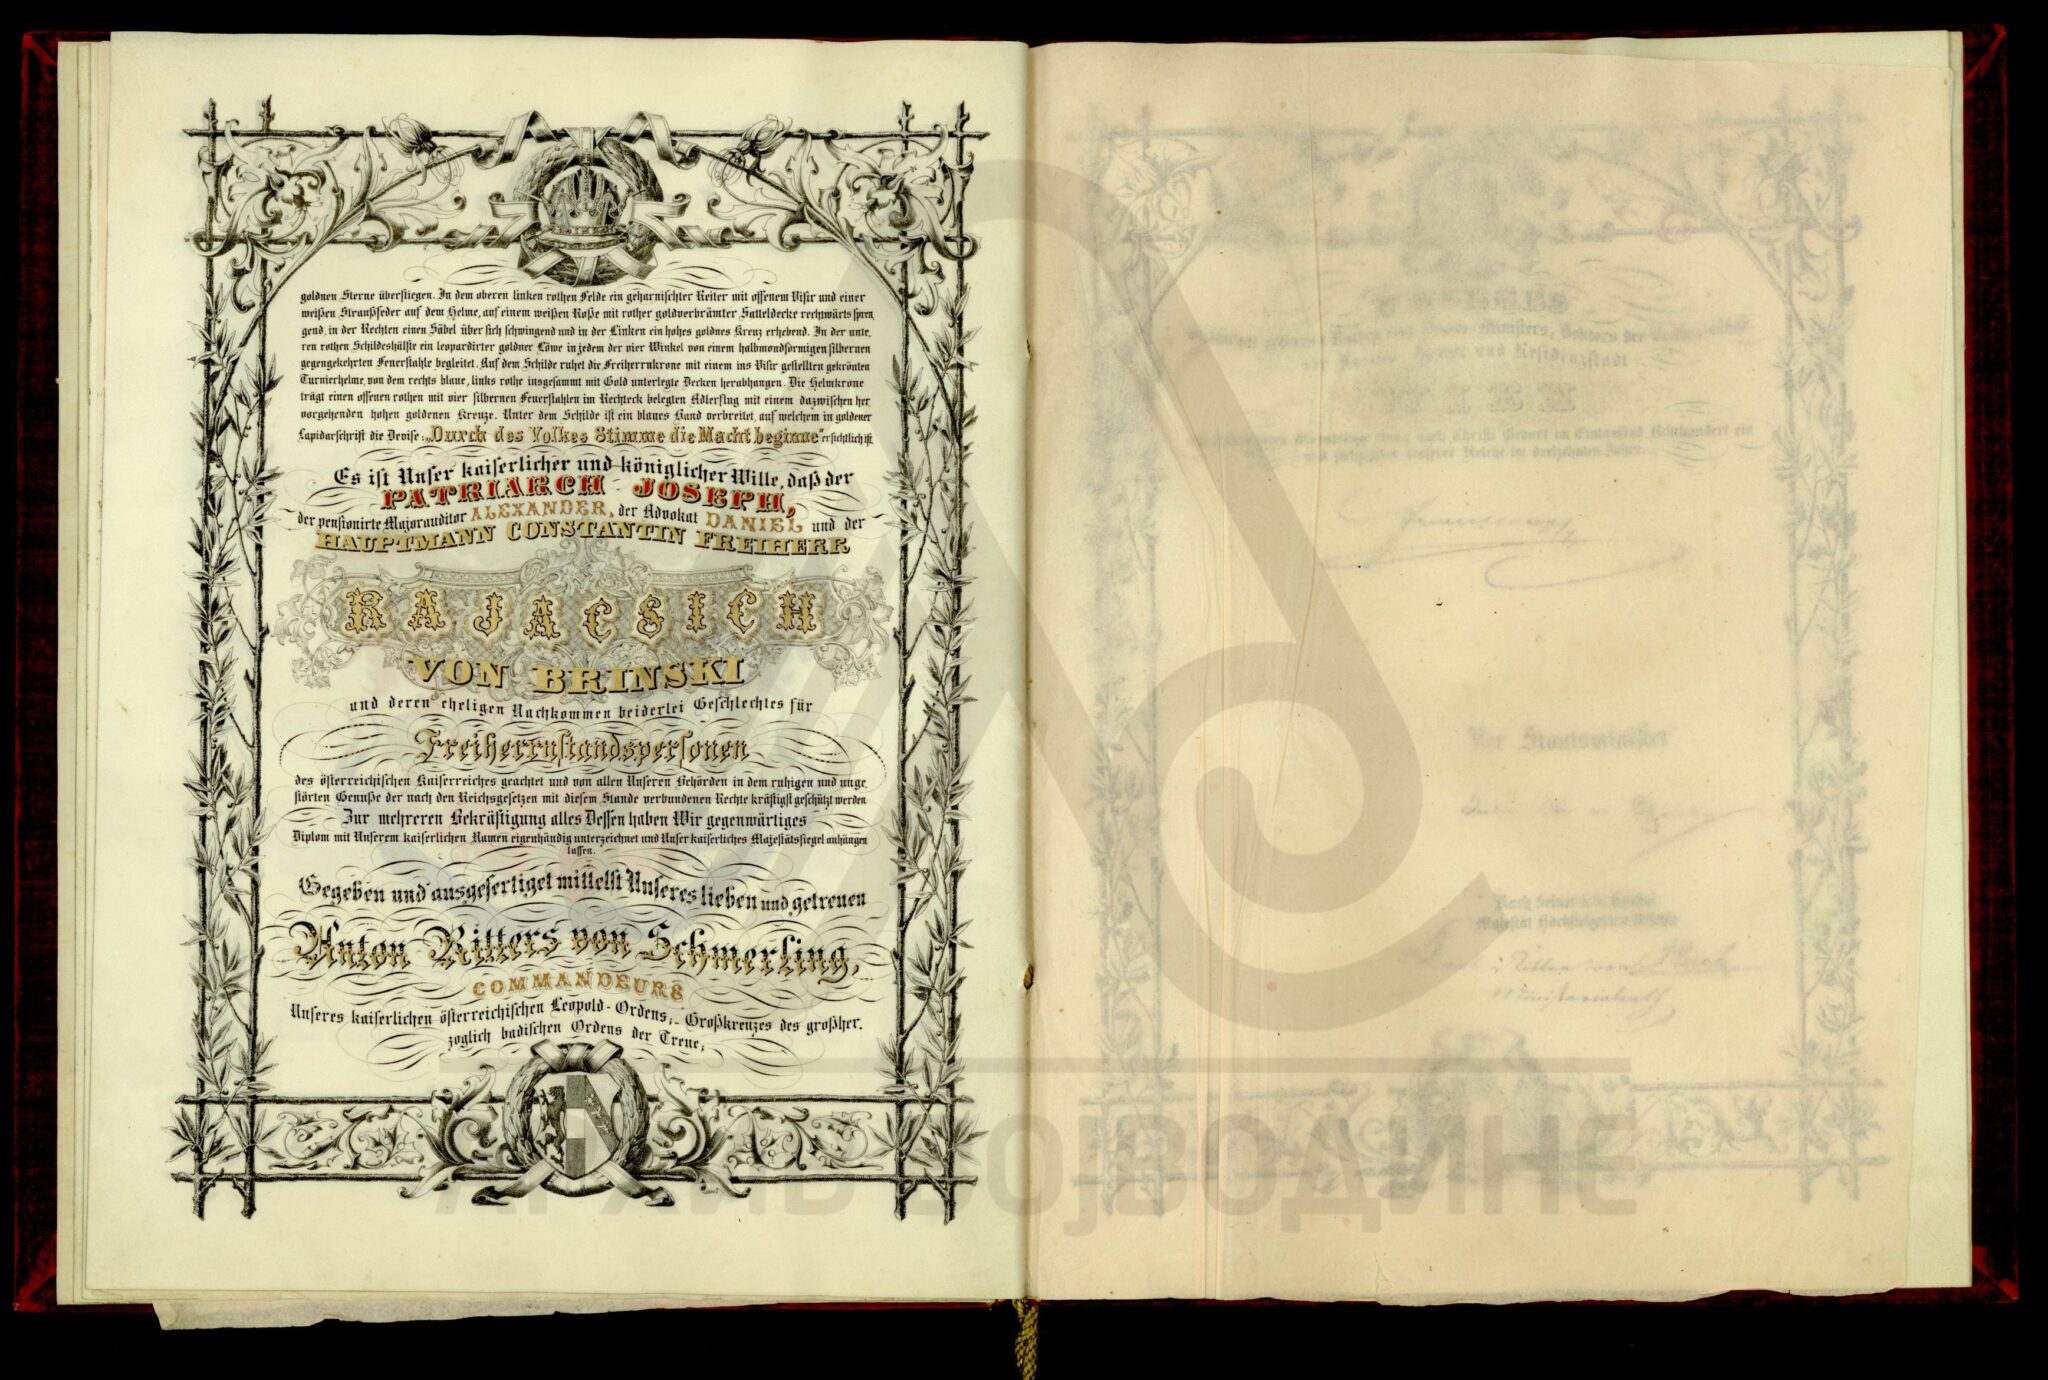 goldnen Sterne überstiegen. In dem oberen linken rothen Felde ein geharnischter Reiter mit offenem Visir und einer
weißen Straußfeder auf dem Helme, auf einem weißen Roße mit rother goldverbrämter Satteldecke rechtwärts spren
gend, in der Rechten einen Säbel über sich schwingend und in der Linken ein hohes goldnes Kreuz erhebend. In der unte.
ren rothen Schildeshälfte ein leopardirter goldner Löwe in jedem der vier Winkel von einem halbmondförmigen silbernen
gegengekehrten Feuerstahle begleitet. Auf dem Schilde ruhet die Freiherrnkrone mit einem ins Visir gestellten gekrönten
Turnierhelme, von dem rechts blaue, links rothe insgesammt mit Gold unterlegte Decken herabhangen. Die Helmkrone
trägt einen offenen rothen mit vier silbernen Feuerstahlen im Rechteck belegten Adlerflug mit einem dazwischen her.
vorgehenden hohen goldenen Kreuze. Unter dem Schilde ist ein blaues Band verbreitet, auf welchem in goldener
Lapidarschrift die Devise: „Durch des Volkes Stimme die Macht beginne" ersichtlich ist.
Es ist Unser kaiserlicher und königlicher Wille, daß der
PATRIARCH JOSEPH,
der pensionirte Majorauditor ALEXANDER, der Advokat DANIEL und der
HAUPTMANN CONSTANTIN FREIHERR
RAJACSICH
VON BRINSKI
und deren eheligen Nachkommen beiderlei Geschlechtes für
Freiherrnstandspersonen
des österreichischen Kaiserreiches geachtet und von allen Unseren Behörden in dem ruhigen und unge.
störten Genuße der nach den Reichsgesetzen mit diesem Stande verbundenen Rechte kräftigst geschützt werden
Zur mehreren Bekräftigung alles Dessen haben Wir gegenwärtiges
Diplom mit Unserem kaiserlichen Namen eigenhändig unterzeichnet und Unser kaiserliches Majestätssiegel anhängen
lassen.
Gegeben und ausgefertiget mittelst Unseres lieben und getreuen
Anton Ritters von Schmerling,
COMMANDEURS
Unseres kaiserlichen österreichischen Leopold-Ordens,- Großkreuzes des großher.
zoglich badischen Ordens der Treue;
Der Staatsminister
АРХИВ ВОЈВОДИНЕ